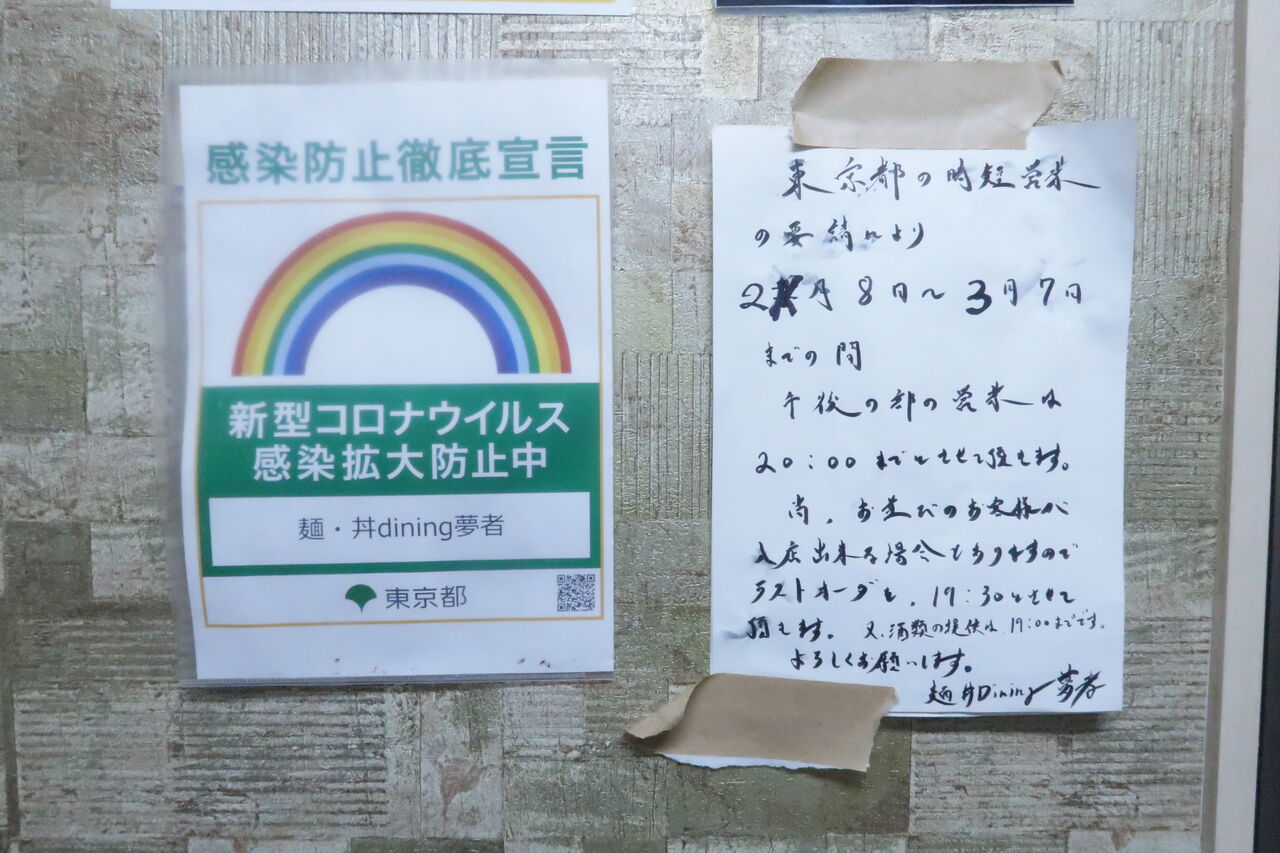 感染防止徹底宣言
新型コロナウイルス
感染拡大防止中
麺・丼dining夢者
東京都
東京都の時短営業
の要請により
2月8日〜3月7日
までの間
午後の部の営業は
20:00までとさせて頂きます。
尚、お並びのお客様が
入店出来る場合もありますので
ラストオーダーを、19:30とさせて
頂きます。又、酒類の提供は、19:00までです。
よろしくお願いします。
麺丼Dining夢者